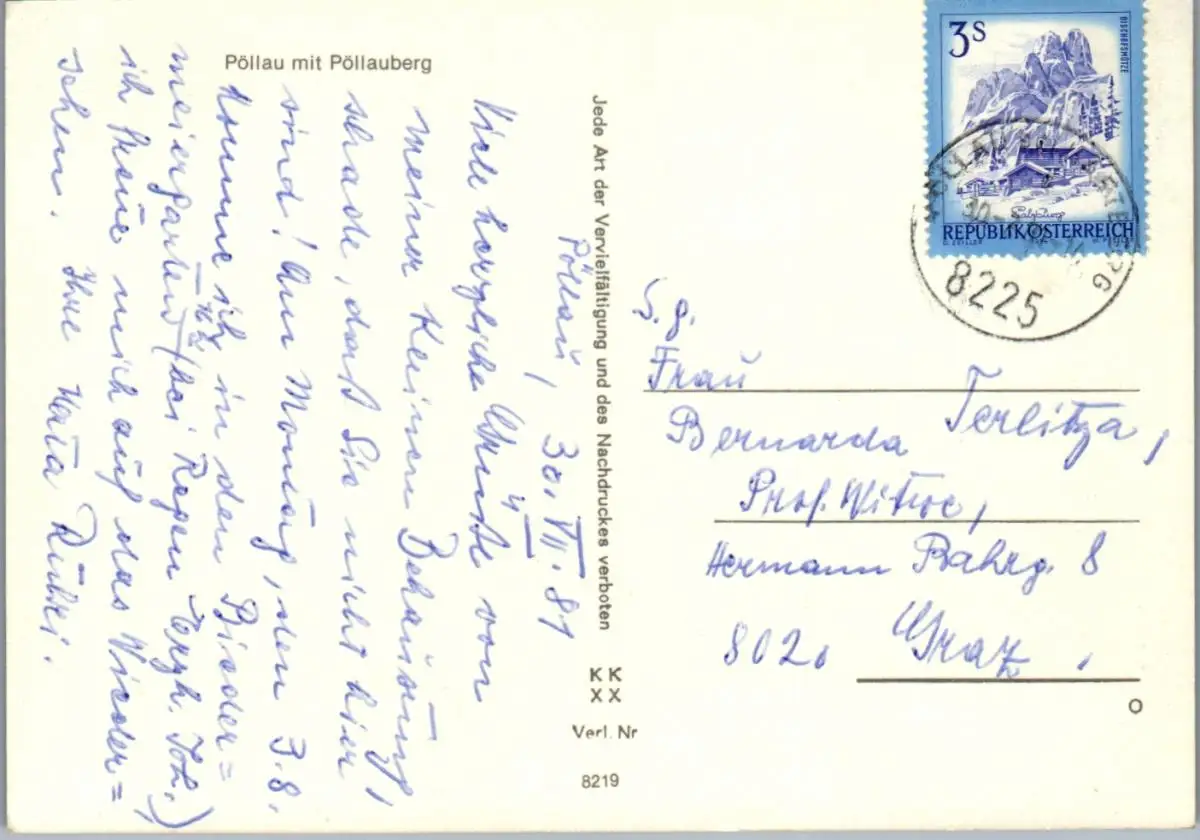 Pöllau mit Pöllauberg
Pöllau, 30.VII.81
Viele herzliche Grüße von
meiner kleinen Behausung,
schade, daß Sie nicht hier
sind! Am Montag, den 3.8.
komme ich in den Bieder=
meiergarten (bei Regen Erzh. Joh.)
ich freue mich auf das Wieder=
sehen. Ihre
Jede Art der Vervielfältigung und des Nachdruckes verboten
KK
XX
Verl. Nr
8219
3S
BISCHOFSMÜTZE
Salzburg
REPUBLIK ÖSTERREICH
8225
S. g.
Frau
Bernarda Terlitza,
Prof. Witwe,
Hermann Bahrg. 8
8020 Graz,